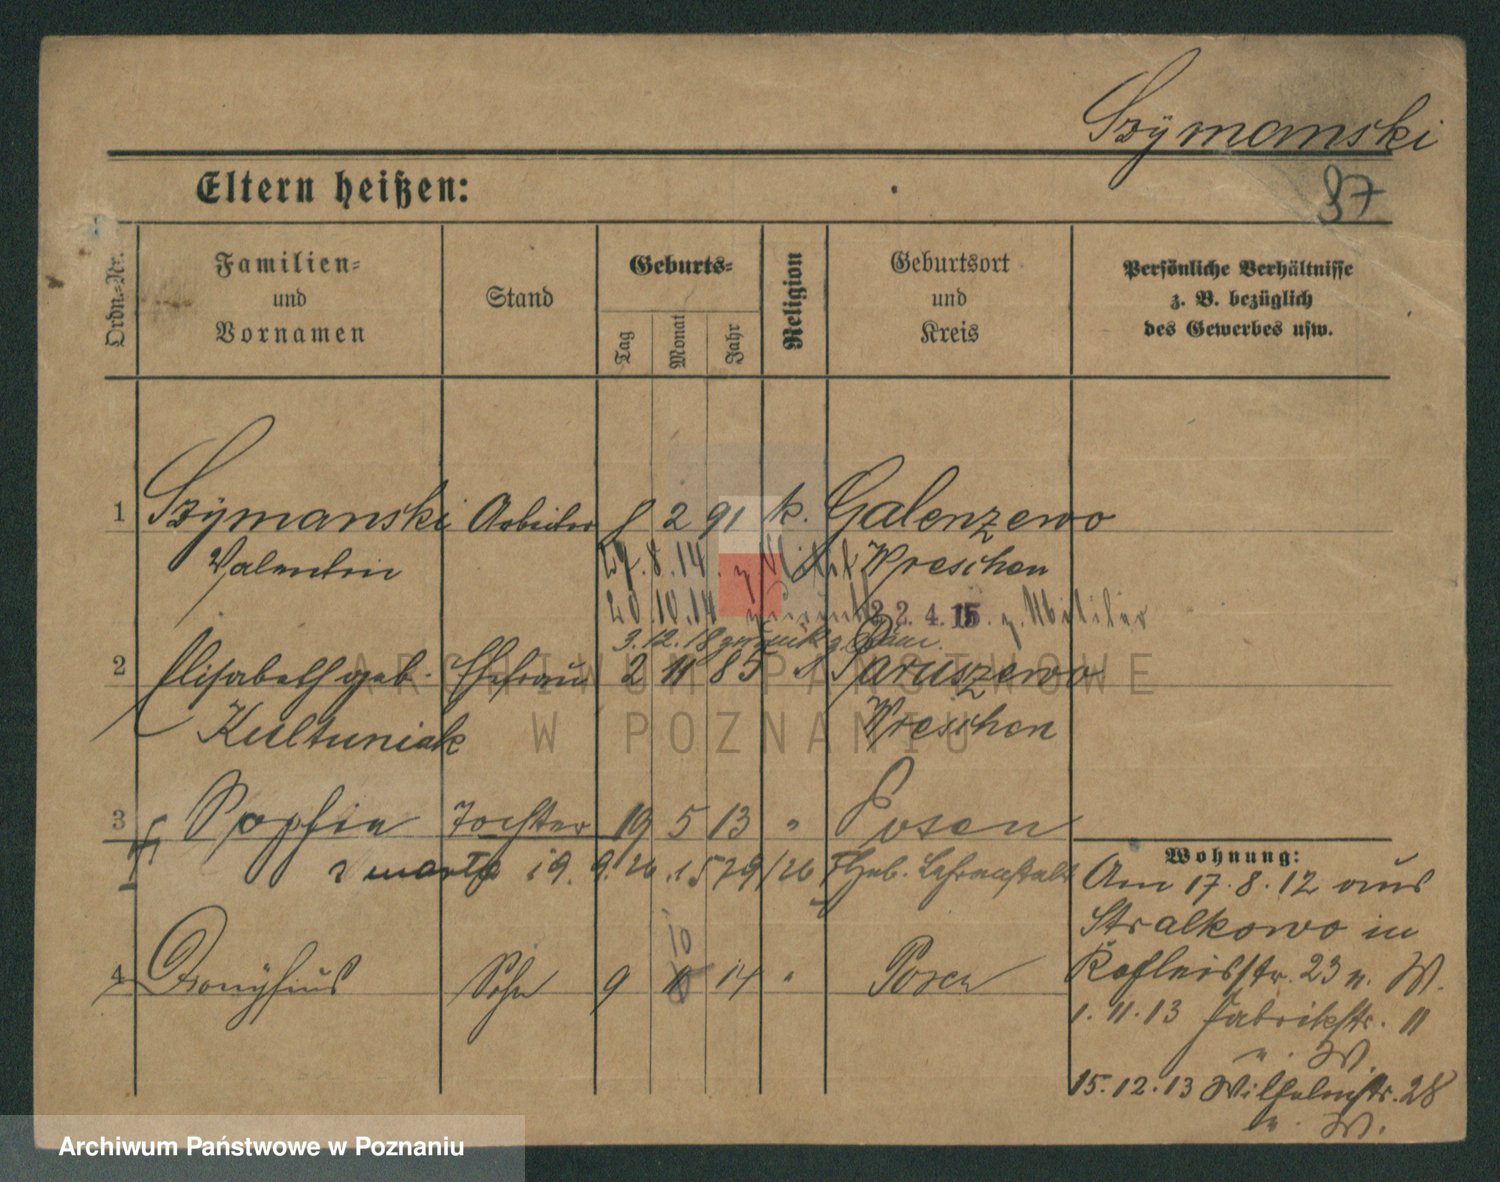 Szÿmanski
Eltern heißen:
37
Ordn.-Nr.
Familien-
und
Vornamen
Stand
Geburts-
Tag
Monat
Jahr
Religion
Geburtsort
und
Kreis
Persönliche Verhältnisse
z. B. bezüglich
des Gewerbes usw.
1 Szÿmanski Arbeiter 8 2 91 k. Galenzewo
Valentin Wreschen
27.8.14. z. Milit
20.10.14 zurück 22.4.15. z. Militär
3.12.18 zurück
2 Elisabeth geb. Ehefrau 2 11 85 " Paruszewo
Kultuniak Wreschen
3 Sophie Tochter 19 5 13 " Posen
zmarła 19.9.26 1579/26 Heb. Lehranstalt
10
4 Dionÿsius Sohn 9 14 " Posen
Wohnung:
Am 17.8.12 aus
Stralkowo in
23 n. W.
1.11.13 Fabrikstr. 11
n. W.
15.12.13 Wilhelmstr. 28
n. W.
ARCHIWUM PAŃSTWOWE
W POZNANIU
Archiwum Państwowe w Poznaniu